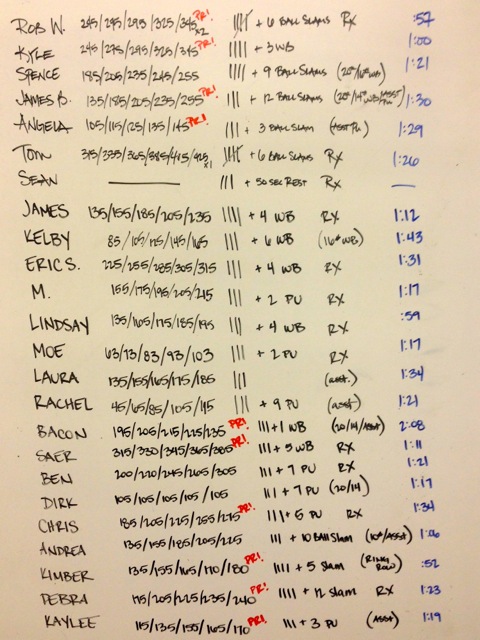 ROB W. 245/275/295/325/345 PR! x2 𝍸 + 6 BALL SLAMS RX :57
KYLE 245/275/295/325/345 PR! |||| + 3 WB 1:00
SPENCE 185/205/235/245/255 |||| + 9 BALL SLAMS (20#/16#WB) 1:21
JAMES B. 135/185/205/235/255 PR! ||| + 12 BALL SLAMS (20#/14#WB/ASST PU) 1:30
ANGELA 105/115/125/135/145 PR! ||| + 3 BALL SLAM (ASST PU) 1:29
TOM 315/335/365/385/415/425 x1 𝍸 + 6 BALL SLAMS RX 1:26
SEAN ——— ||| + 50 SEC REST RX —
JAMES 135/155/185/205/235 |||| + 4 WB RX 1:12
KELBY 85/105/125/145/165 ||| + 6 WB (16# WB) 1:43
ERIC S. 225/255/285/305/315 ||| + 4 WB RX 1:31
M. 155/175/195/205/215 ||| + 2 PU RX 1:17
LINDSAY 135/165/175/185/195 ||| + 4 WB RX :59
MOE 63/73/83/93/103 ||| + 2 PU RX 1:17
LAURA 135/155/165/175/185 ||| (asst.) 1:34
RACHEL 45/65/85/105/115 ||| + 9 PU (asst) 1:21
BACON 195/205/215/225/235 PR! ||| + 1 WB (20/14/ASST) 2:08
SAER 315/330/345/365/385 PR! ||| + 5 WB RX 1:11
BEN 200/220/245/265/305 ||| + 7 PU RX 1:21
DIRK 105/105/105/105/105 ||| + 7 PU (20/14) 1:17
CHRIS 185/205/225/255/275 PR! ||| + 5 PU RX 1:34
ANDREA 135/155/185/205/225 ||| + 10 BALL SLAM (10#/ASST) 1:06
KIMBER 135/155/165/170/180 PR! |||| + 5 SLAM (RING ROW) :52
DEBRA 175/205/225/235/240 PR! |||| + 12 SLAM RX 1:23
KAYLEE 115/135/155/165/170 PR! ||| + 3 PU (ASST) 1:19